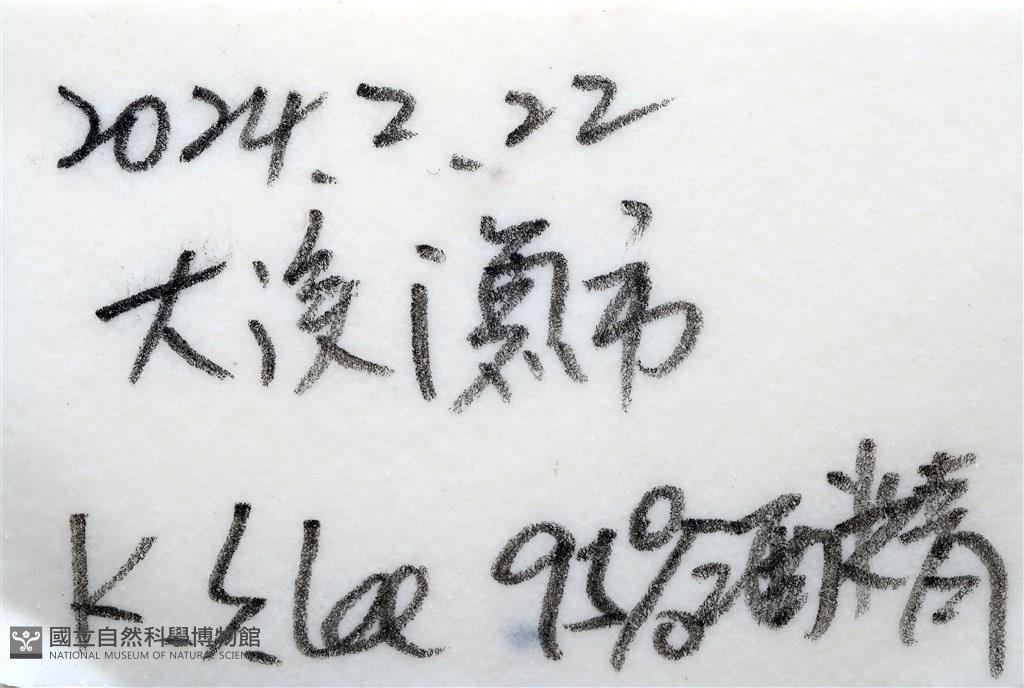 2024.2.22
大溪漁市
K S Lee 95%酒精
國立自然科學博物館
NATIONAL MUSEUM OF NATURAL SCIENCE